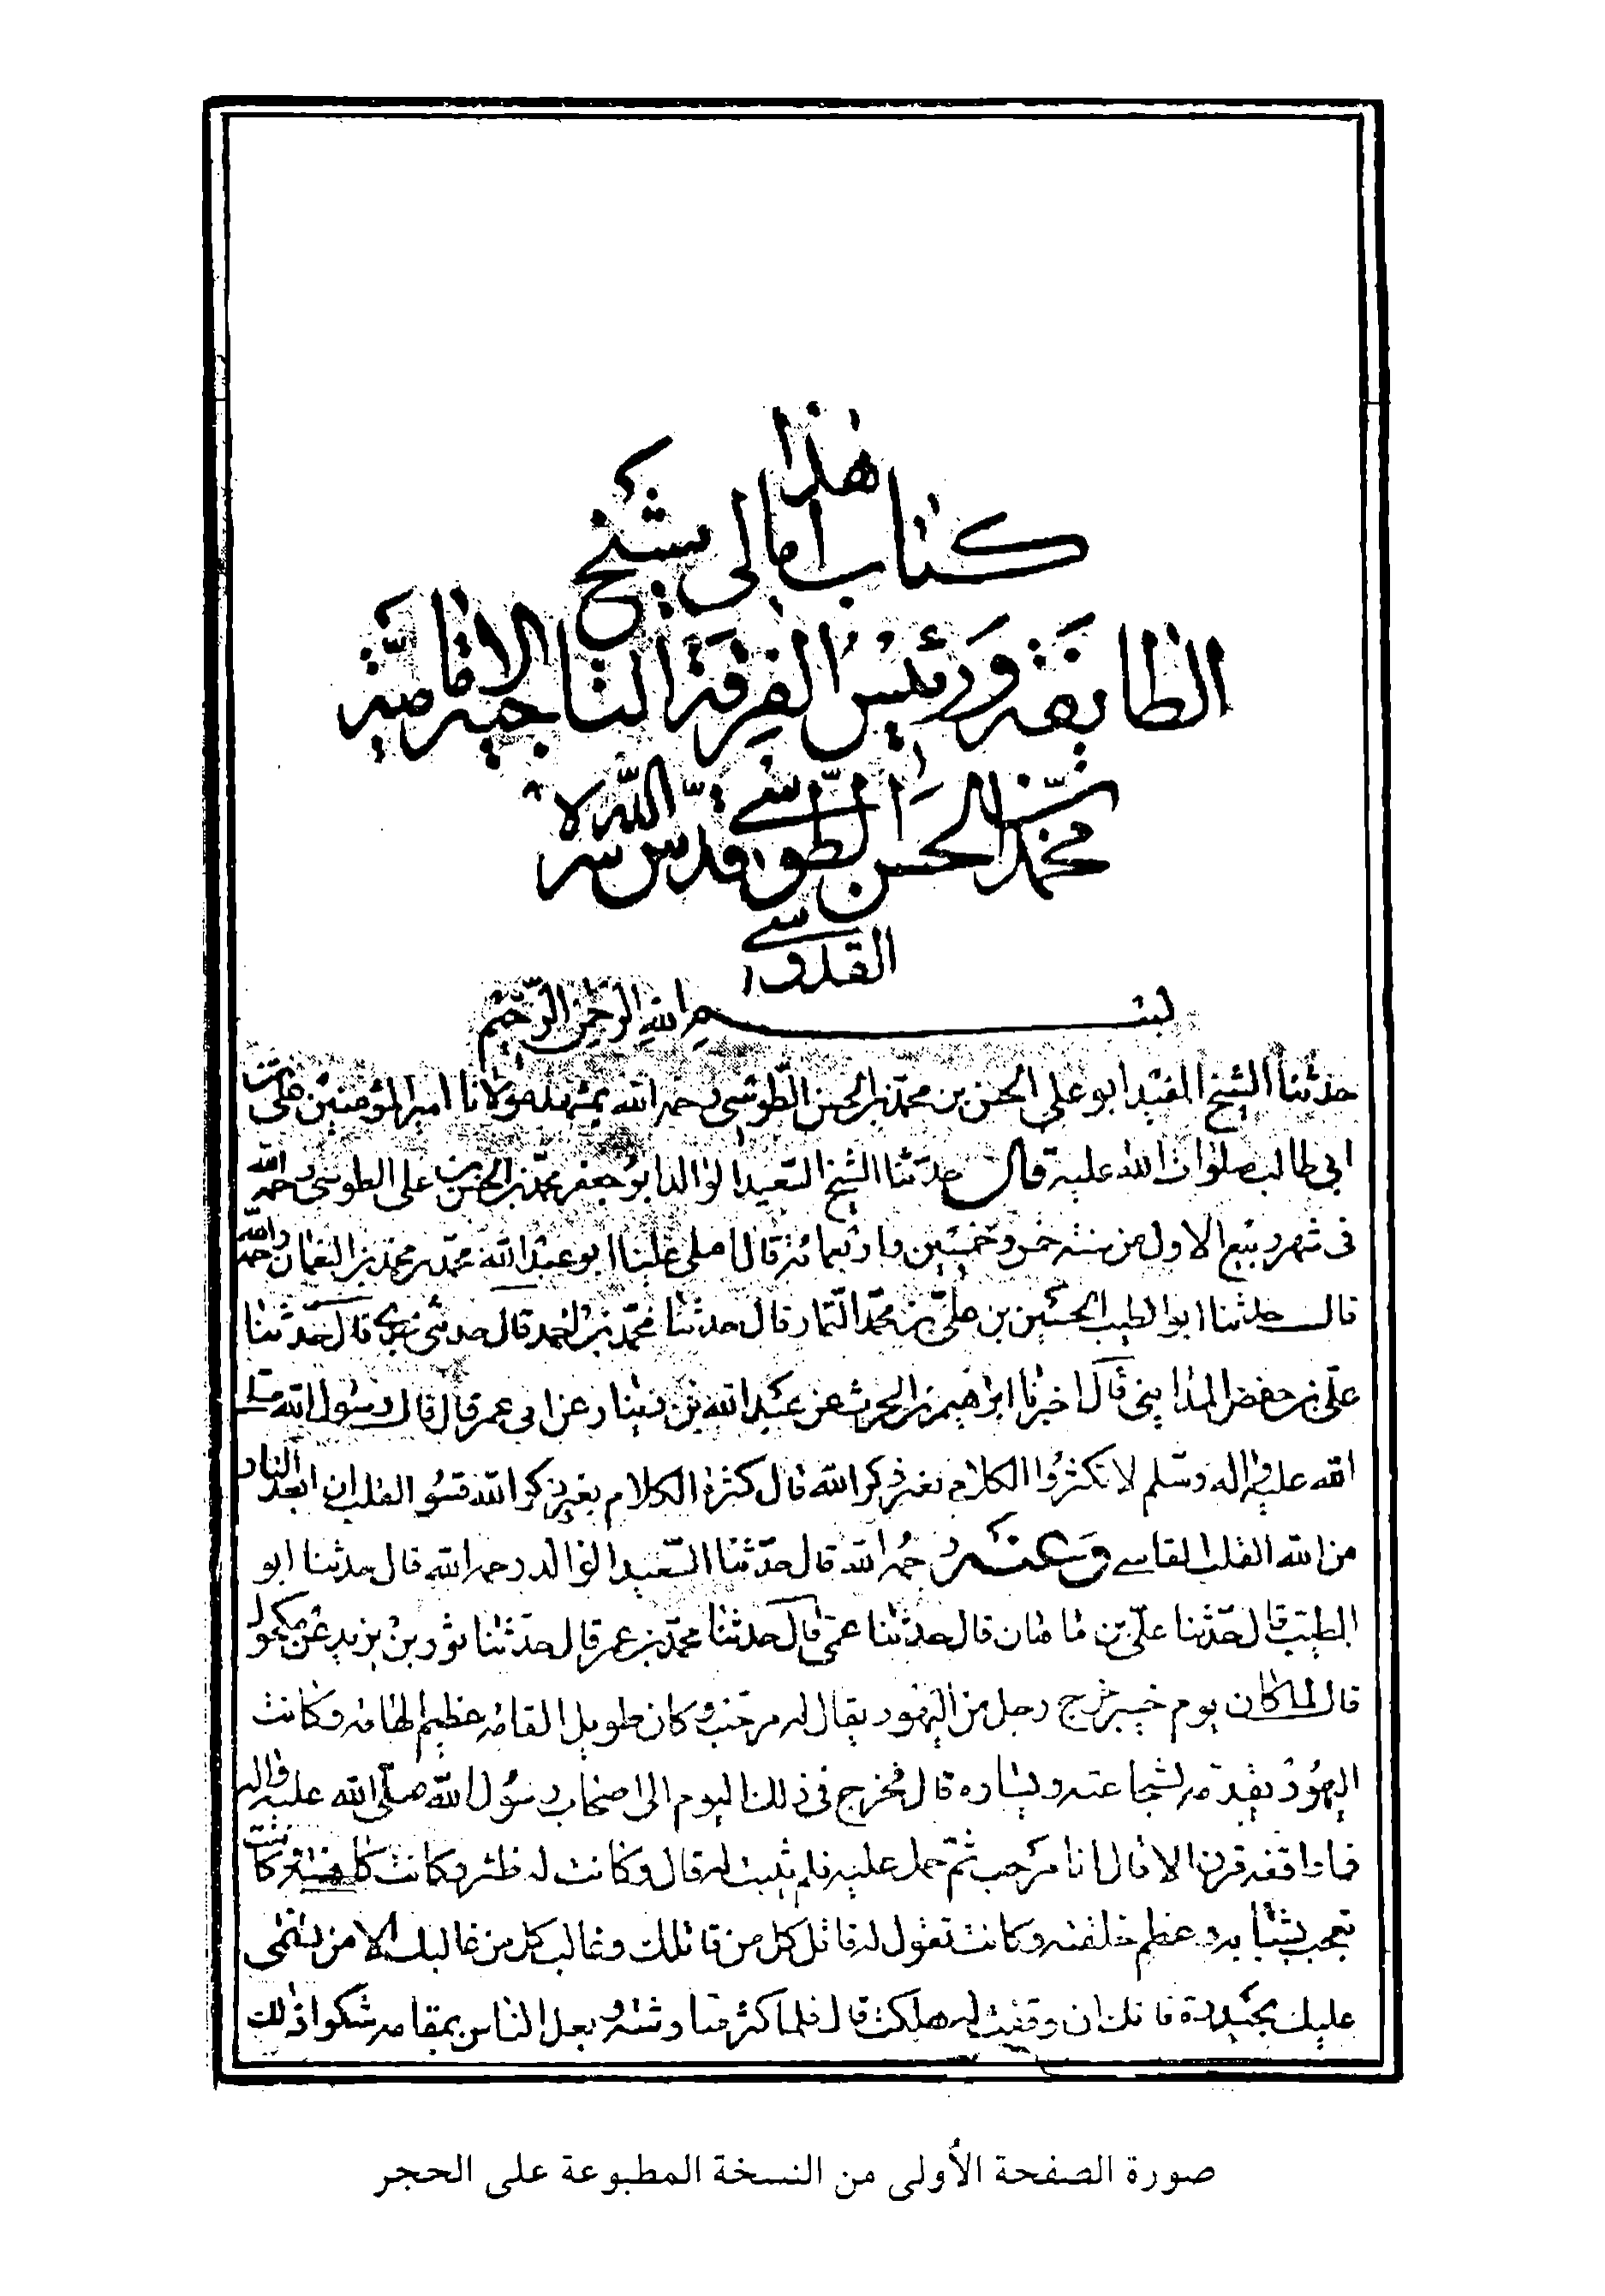 هذا
كتاب امالى شيخ
الطايفة ورئيس الفرقة الناجية الامامية
شيخنا محمد بن الحسن الطوسى قدس الله سره
القدوسى
بسم الله الرحمن الرحيم
حدثنا الشيخ المفيد ابو على الحسن بن محمد بن الحسن الطوسى رحمه الله بمشهد مولانا امير المؤمنين على بن
ابى طالب صلوات الله عليه قال حدثنا الشيخ السعيد الوالد ابو جعفر محمد بن الحسن بن على الطوسى رحمه الله
فى شهر ربيع الاول من سنة خمس وخمسين واربعمائة قال املى علينا ابو عبد الله محمد بن محمد بن النعمان رحمه الله
قال حدثنا ابو الطيب الحسين بن على بن محمد التمار قال حدثنا محمد بن احمد قال حدثنى جدى قال حدثنا
على بن حفص المداينى قال اخبرنا ابراهيم بن الحرث عن عبد الله بن دينار عن ابى عمر قال قال رسول الله صلى
الله عليه واله وسلم لا تكثروا الكلام بغير ذكر الله فان كثرة الكلام بغير ذكر الله قسو القلب ان ابعد الناس
من الله القلب القاسى وعنه رحمه الله قال حدثنا السعيد الوالد رحمه الله قال حدثنا ابو
الطيب قال حدثنا على بن ماهان قال حدثنا عمى قال حدثنا محمد بن عمر قال حدثنا ثور بن يزيد عن مكحول
قال لما كان يوم خيبر خرج رجل من اليهود يقال له مرحب وكان طويل القامة عظيم الهامة وكانت
اليهود تقدمه لشجاعته ويساره قال فخرج فى ذلك اليوم الى اصحاب رسول الله صلى الله عليه واله
فما واقفه قرن الا قال انا مرحب ثم حمل عليه فلم يثبت له قال وكانت له ظئر وكانت كاهنة كانت
تعجب بشبابه وعظم خلقته وكانت تقول له قاتل كل من قاتلك وغالب كل من غالبك الا من تسمى
عليك بحيدرة فانك ان وقفت له هلكت قال فلما كثر مناوشته وبعل الناس بمقامه شكوا ذلك
صورة الصفحة الأولى من النسخة المطبوعة على الحجر